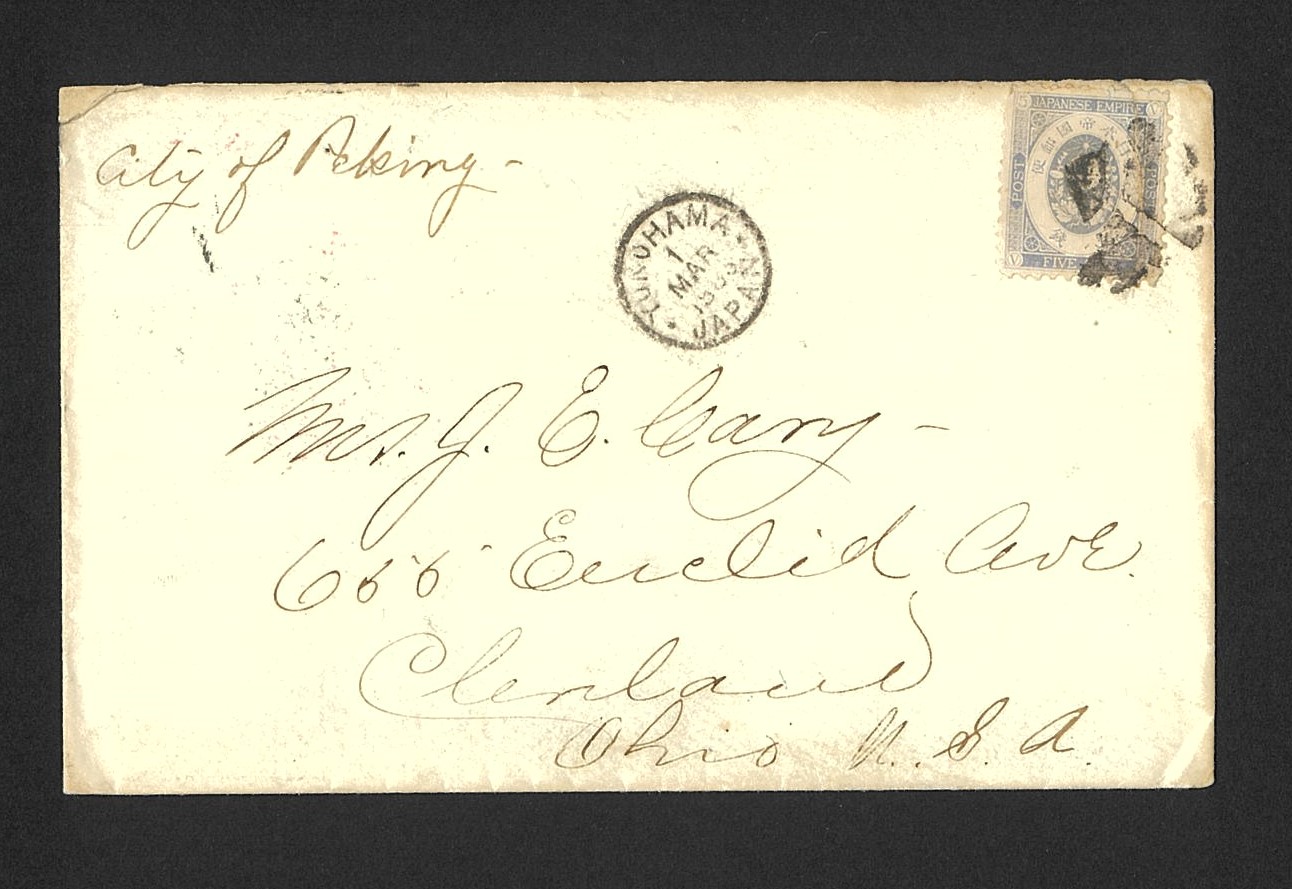 City of Peking -
JAPANESE EMPIRE
大日本帝國郵便
POST
POST
FIVE
YOKOHAMA
1
MAR
JAPAN
Mrs. J. E. Cary -
655 Euclid Ave.
Cleveland
Ohio U.S.A.